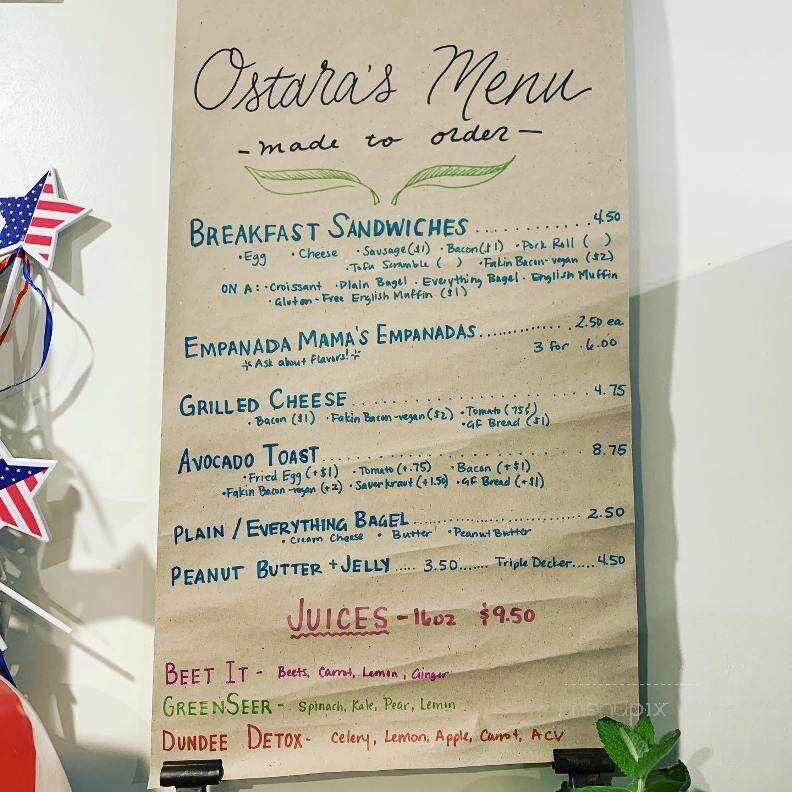 Ostara's Menu
- made to order -
BREAKFAST SANDWICHES .......... 4.50
• Egg • Cheese • Sausage ($1) • Bacon ($1) • Pork Roll ( )
• Tofu Scramble ( ) • Fakin Bacon-vegan ($2)
ON A: • Croissant • Plain Bagel • Everything Bagel • English Muffin
• Gluten-Free English Muffin ($1)
EMPANADA MAMA'S EMPANADAS .......... 2.50 ea
Ask about flavors! 3 for 6.00
GRILLED CHEESE .......... 4.75
• Bacon ($1) • Fakin Bacon-vegan ($2) • Tomato (75¢)
• GF Bread ($1)
AVOCADO TOAST .......... 8.75
• Fried Egg (+$1) • Tomato (+.75) • Bacon (+$1)
• Fakin Bacon-vegan (+2) • Saverkraut (+1.50) • GF Bread (+$1)
PLAIN / EVERYTHING BAGEL .......... 2.50
• Cream Cheese • Butter • Peanut Butter
PEANUT BUTTER + JELLY ..... 3.50 ....... Triple Decker ..... 4.50
JUICES - 16oz $9.50
BEET IT - Beets, Carrot, Lemon, Ginger
GREENSEER - Spinach, Kale, Pear, Lemon
DUNDEE DETOX - Celery, Lemon, Apple, Carrot, ACV
menupix